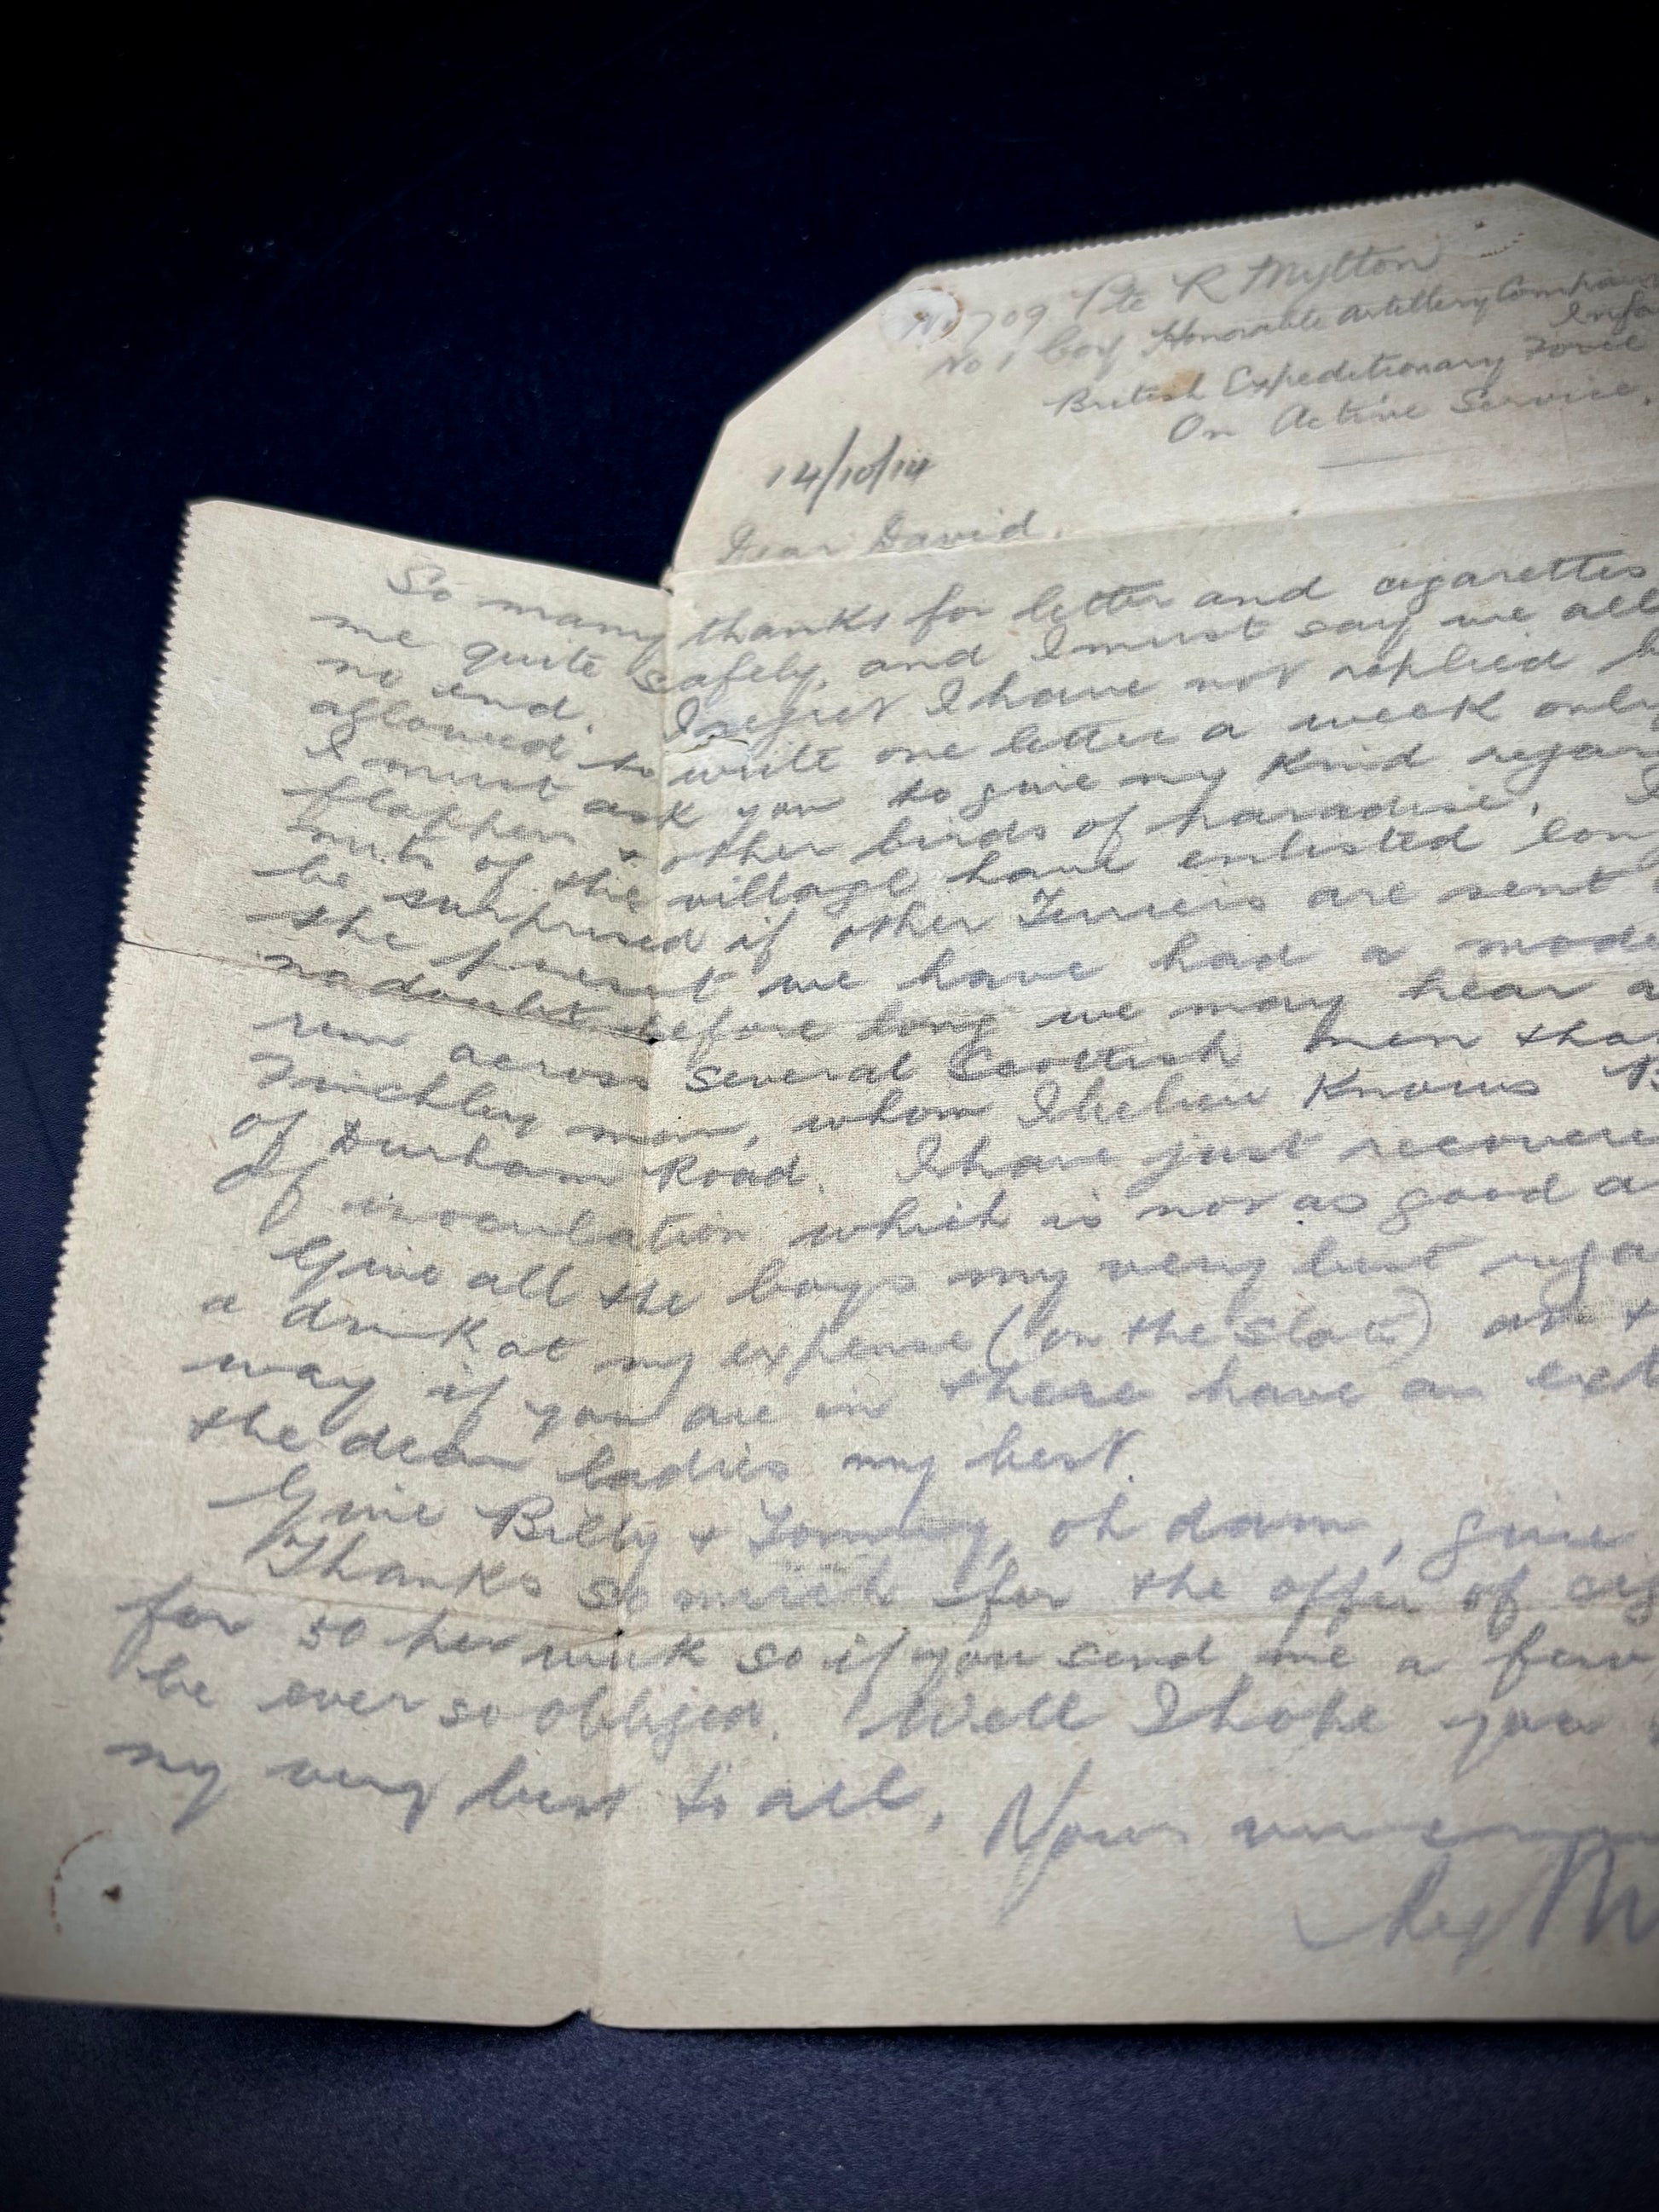 No 709 Pte R Mytton
No 1 Coy Honorable Artillery Compan
Infa
British Expeditionary Force
On Active Service.
14/10/14
Dear David,
So many thanks for letter and cigarettes
me quite safely, and I must say we all
no end. I regret I have not replied b
allowed to write one letter a week only
I must ask you to give my kind regar
flappers & other birds of paradise. I
nuts of the village have enlisted long
be surprised if other Terriers are sent
the present we have had a mode
no doubt before long we may hear a
run across several Scottish men tha
Finchley man, whom I believe knows B
of Durham Road. I have just recovere
of inoculation which is not as good a
Give all the boys my very best rega
a drink at my expense (on the slate) ask t
way if you are in there have an ext
the dear ladies my best.
Give Billy & Tommy, oh dam, give
Thanks so much for the offer of cig
for 50 per week so if you send me a few
be ever so obliged. Well I hope you
my very best to all,
Yours
Reg M